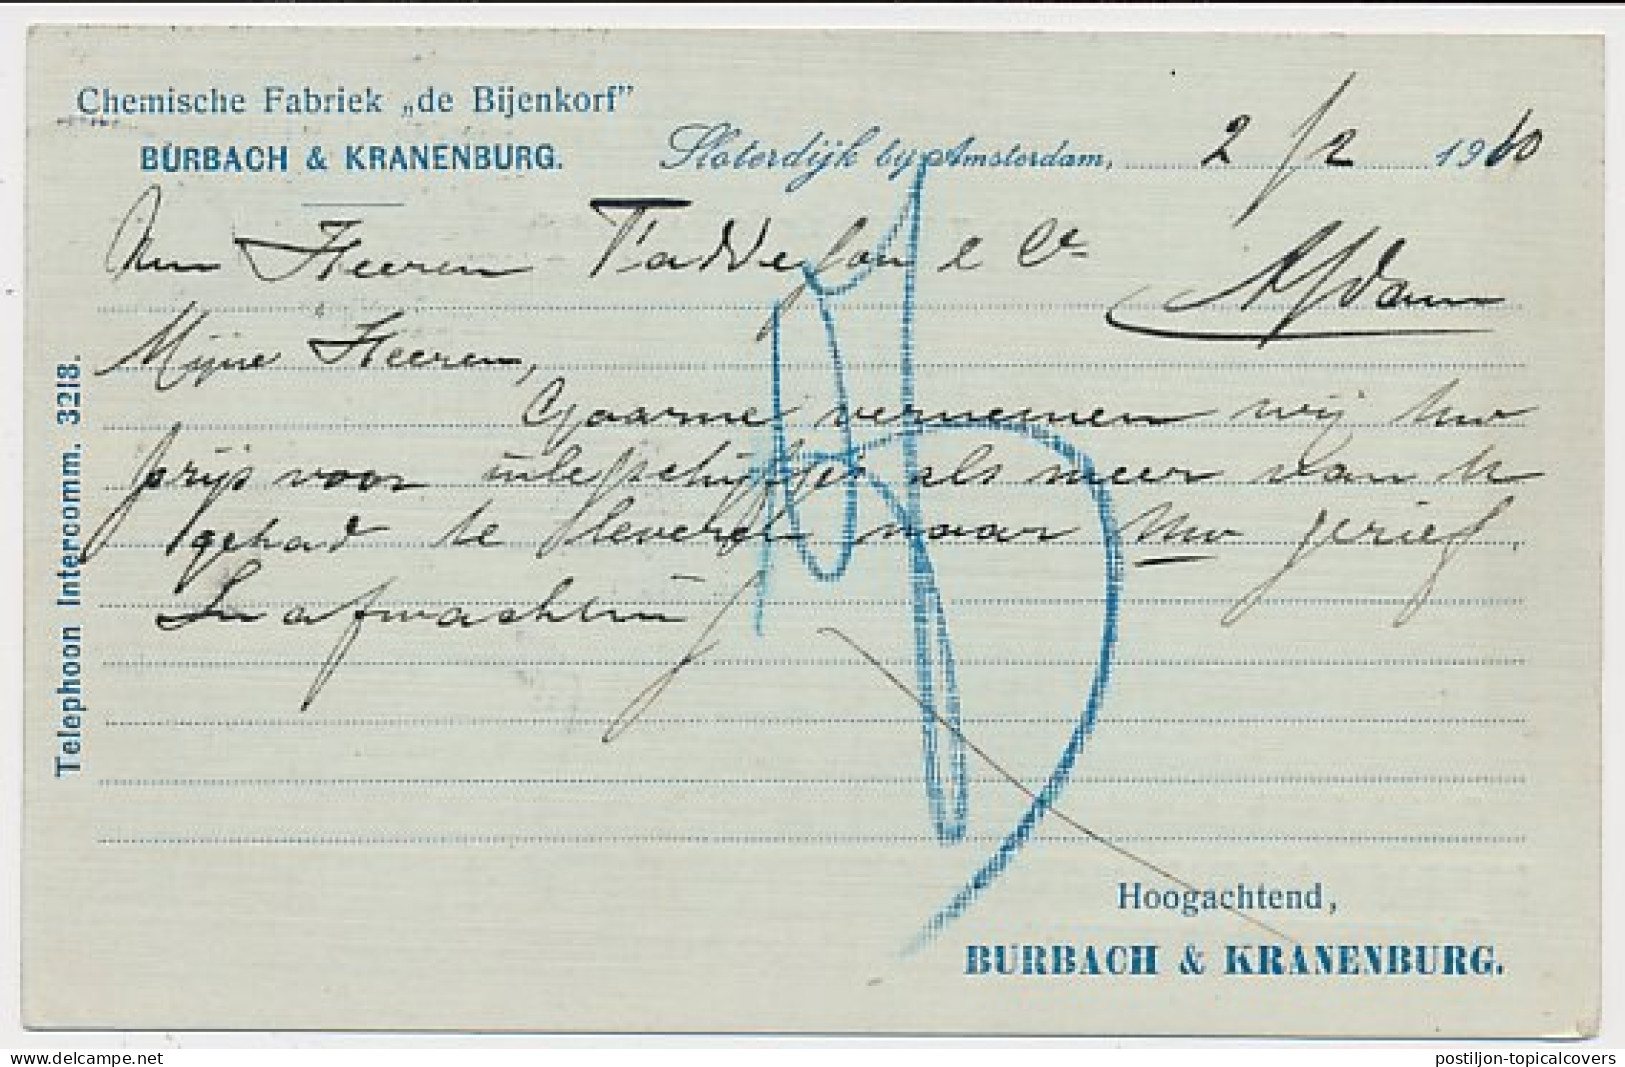 Chemische Fabriek „de Bijenkorf”
BURBACH & KRANENBURG.
Sloterdijk bij Amsterdam, 2/2 1910
Aan Heeren & Co
A/dam
Mijne Heeren,
Gaarne vernemen wij Uw
prijs voor als meer van U
gehad te leveren naar Uw gerief.
In afwachting
Telephoon Intercomm. 3218.
Hoogachtend,
BURBACH & KRANENBURG.
delcampe.net
postiljon-topicalcovers